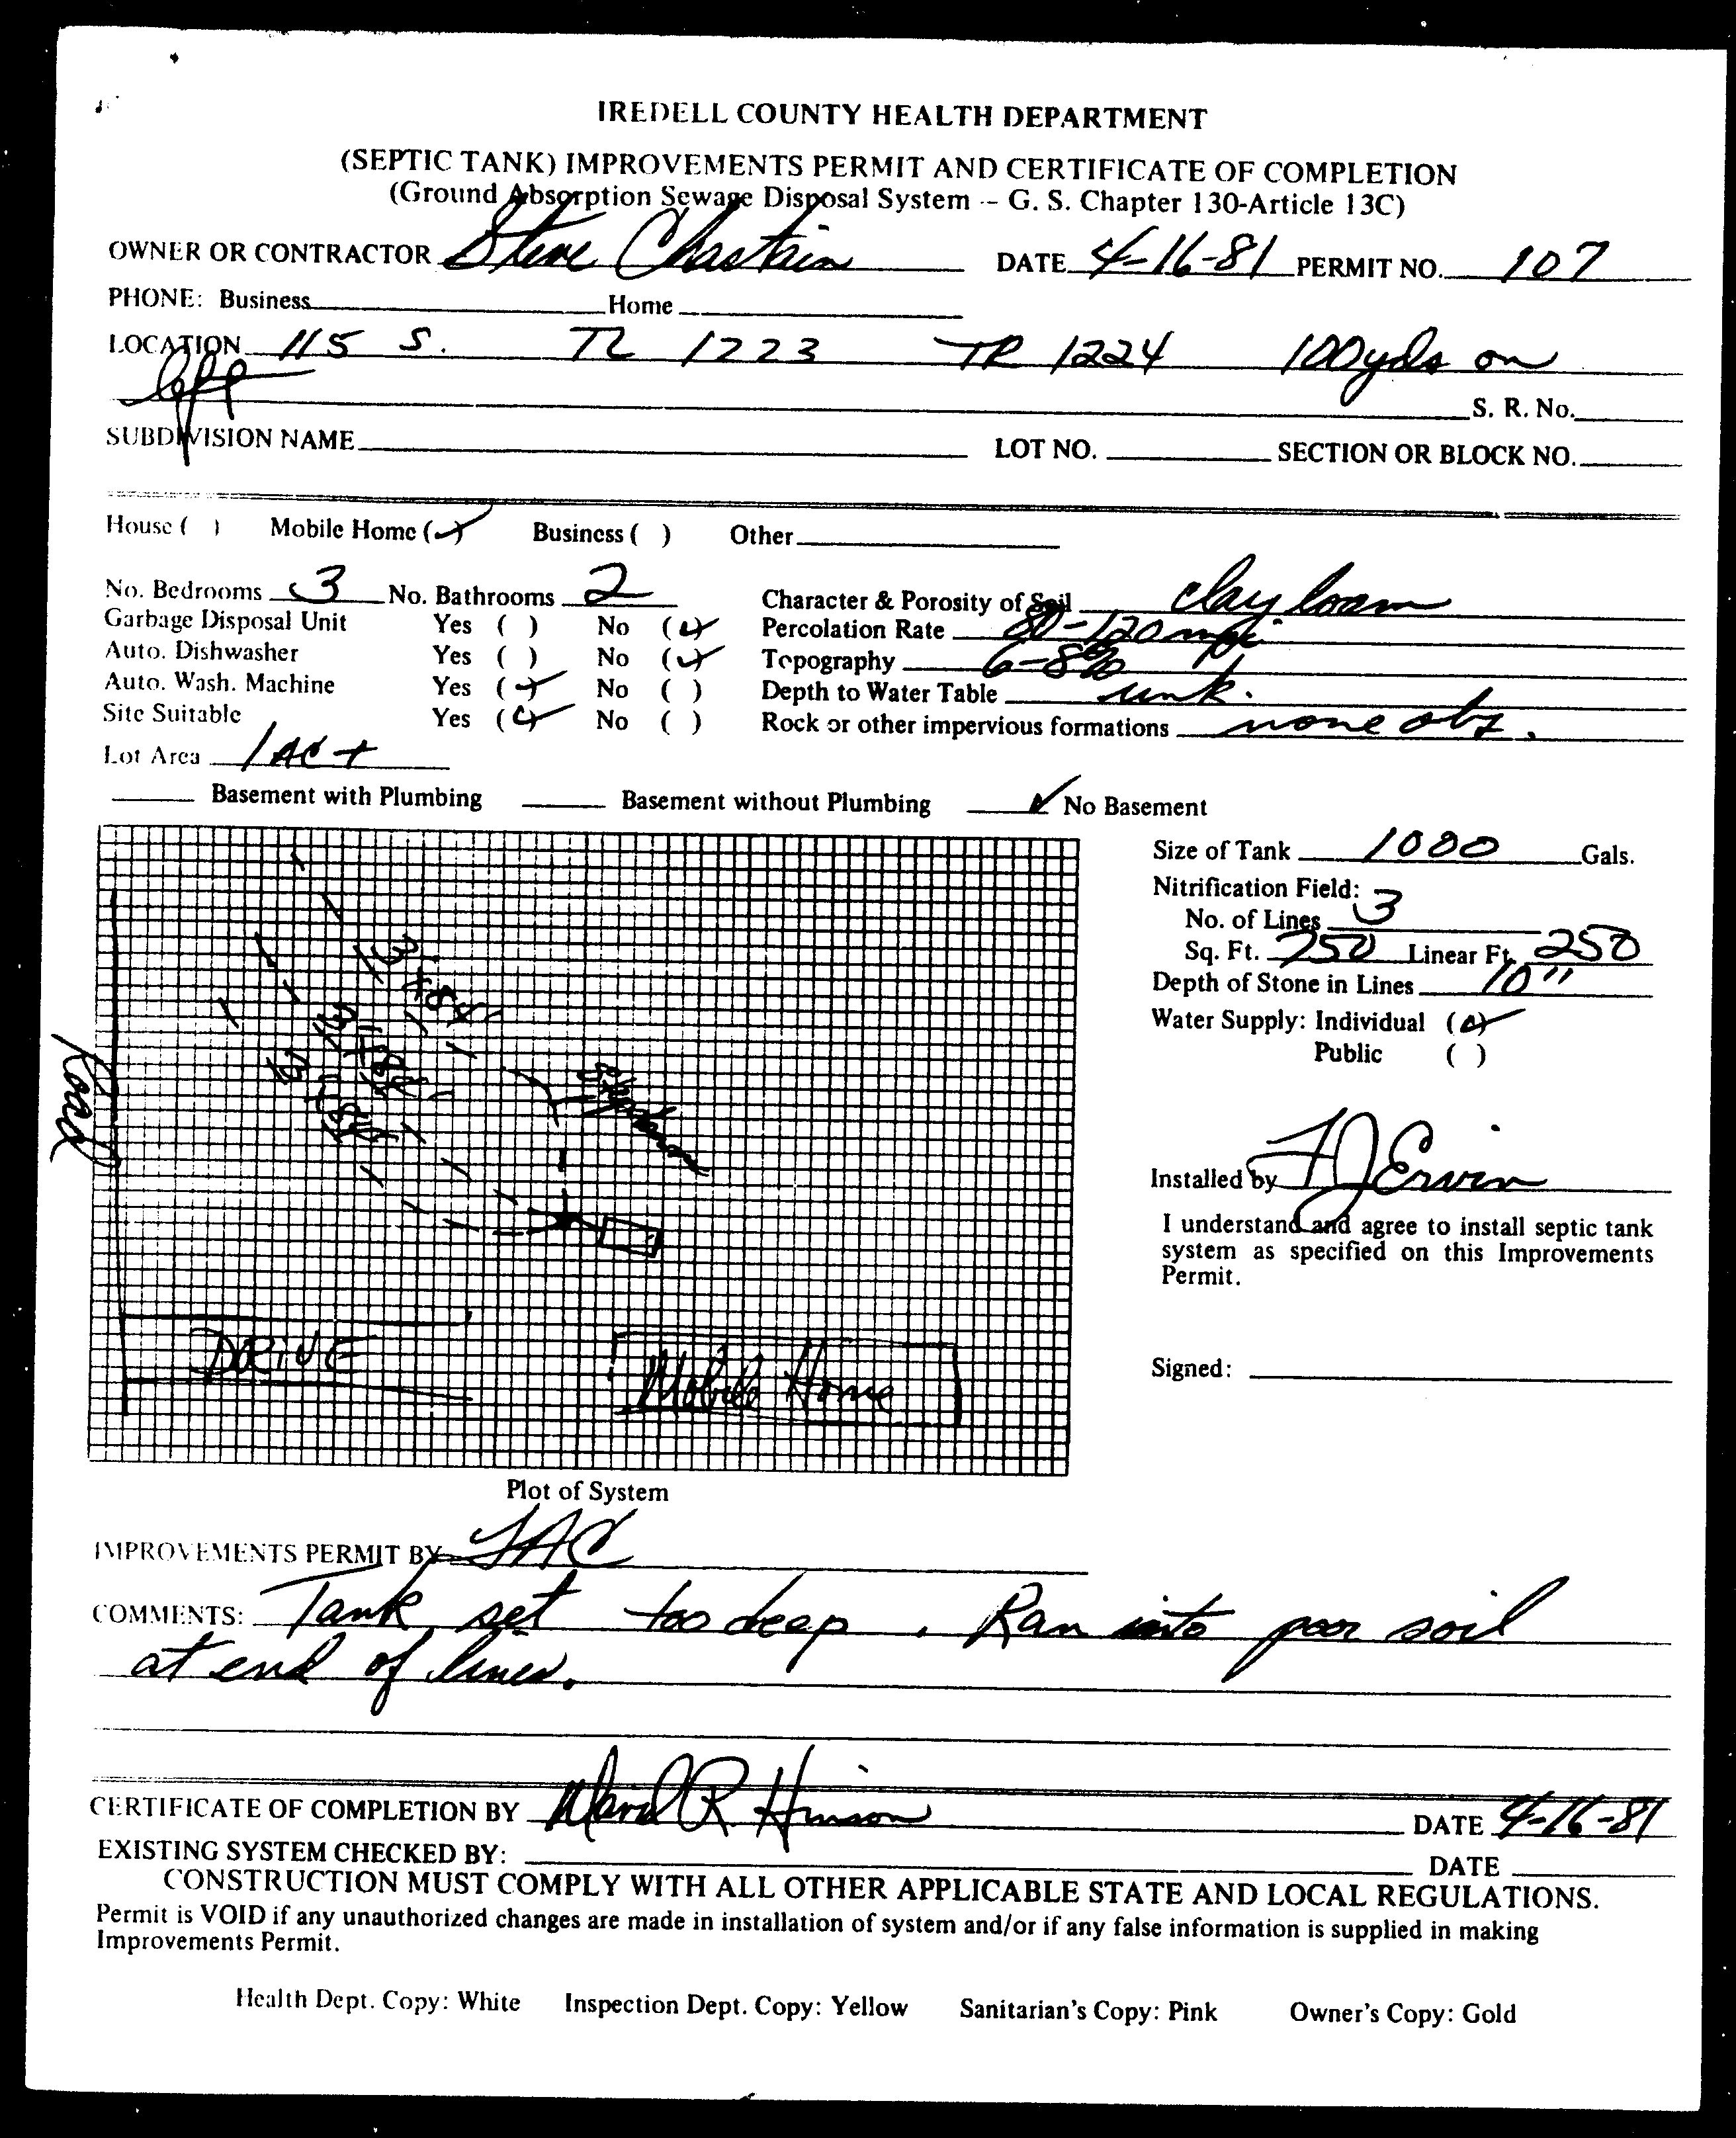 IREDELL COUNTY HEALTH DEPARTMENT
(SEPTIC TANK) IMPROVEMENTS PERMIT AND CERTIFICATE OF COMPLETION
(Ground Absorption Sewage Disposal System -- G. S. Chapter 130-Article 13C)
OWNER OR CONTRACTOR Steve Chastain DATE 4-16-81 PERMIT NO. 107
PHONE: Business Home
LOCATION 115 S. TL 1223 TR 1224 100yds on
left S. R. No.
SUBDIVISION NAME LOT NO. SECTION OR BLOCK NO.
House ( ) Mobile Home (✓) Business ( ) Other
No. Bedrooms 3 No. Bathrooms 2 Character & Porosity of Soil clay loam
Garbage Disposal Unit Yes ( ) No (✓) Percolation Rate 80-120 mpi
Auto. Dishwasher Yes ( ) No (✓) Topography 6-8%
Auto. Wash. Machine Yes (✓) No ( ) Depth to Water Table unk.
Site Suitable Yes (✓) No ( ) Rock or other impervious formations none obs.
Lot Area 1 AC +
Basement with Plumbing Basement without Plumbing ✓ No Basement
Size of Tank 1000 Gals.
Nitrification Field:
No. of Lines 3
Sq. Ft. 750 Linear Ft. 250
Depth of Stone in Lines 10"
Water Supply: Individual (✓)
Public ( )
Road
DRIVE
Mobile Home
Installed by FJ Ervin
I understand and agree to install septic tank
system as specified on this Improvements
Permit.
Signed:
Plot of System
IMPROVEMENTS PERMIT BY
COMMENTS: Tank set too deep. Ran into poor soil
at end of lines.
CERTIFICATE OF COMPLETION BY David R Hinson DATE 4-16-81
EXISTING SYSTEM CHECKED BY: DATE
CONSTRUCTION MUST COMPLY WITH ALL OTHER APPLICABLE STATE AND LOCAL REGULATIONS.
Permit is VOID if any unauthorized changes are made in installation of system and/or if any false information is supplied in making
Improvements Permit.
Health Dept. Copy: White Inspection Dept. Copy: Yellow Sanitarian's Copy: Pink Owner's Copy: Gold